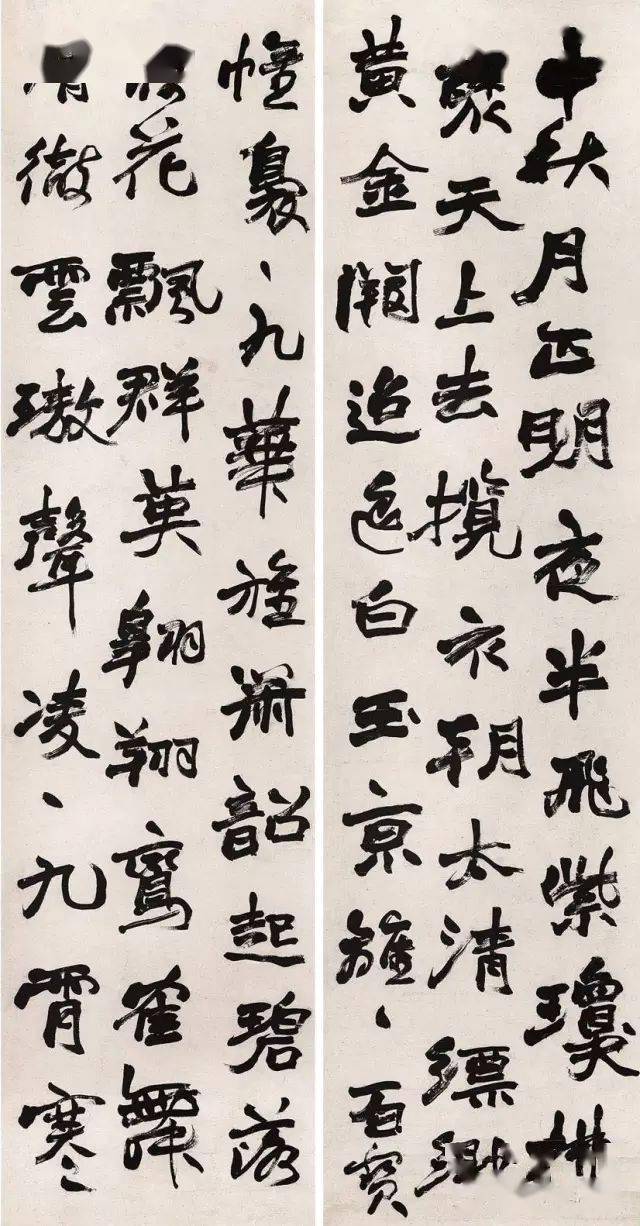 中秋月正明夜半飛紫瓊
天上去攬衣朝太清縹緲
黃金闕迢迢白玉京雝、百寶
幢裊、九華旌簫韶起碧落
花飄群英翱翔鸞雀舞
徹雲璈聲凌、九霄寒